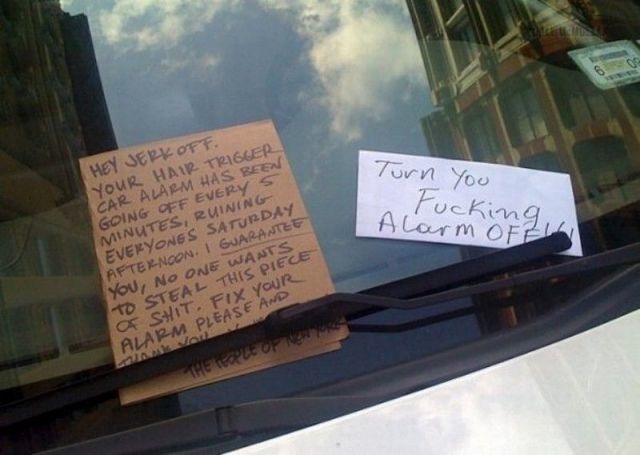 HEY JERK OFF.
YOUR HAIR TRIGGER
CAR ALARM HAS BEEN
GOING OFF EVERY 5
MINUTES, RUINING
EVERYONES SATURDAY
AFTERNOON. I GUARANTEE
YOU, NO ONE WANTS
TO STEAL THIS PIECE
OF SHIT. FIX YOUR
ALARM PLEASE AND
THANK YOU.
THE PEOPLE OF NEW YORK
Turn You
Fucking
Alarm OFF!!!
6 09